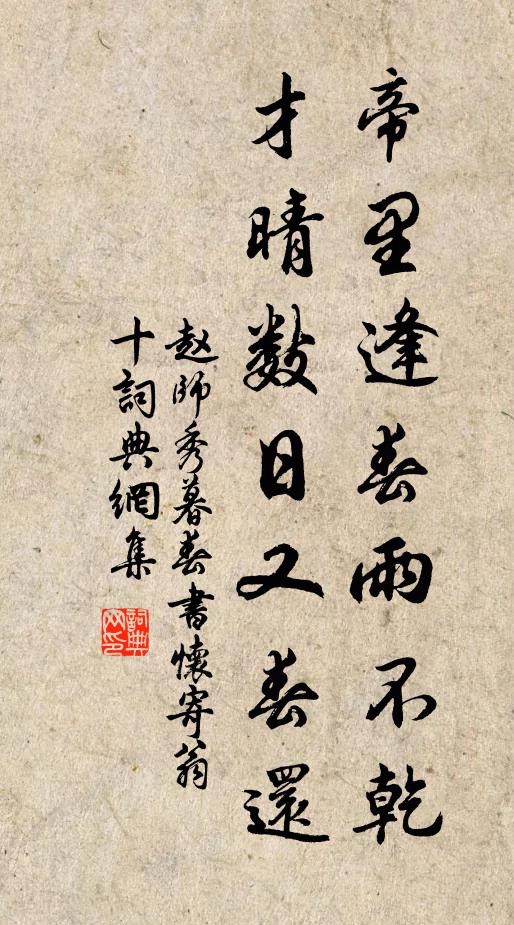 帝里逢春雨不乾
才晴数日又春還
赵師秀暮春書懷寄翁
十詞典網集
詞典网印